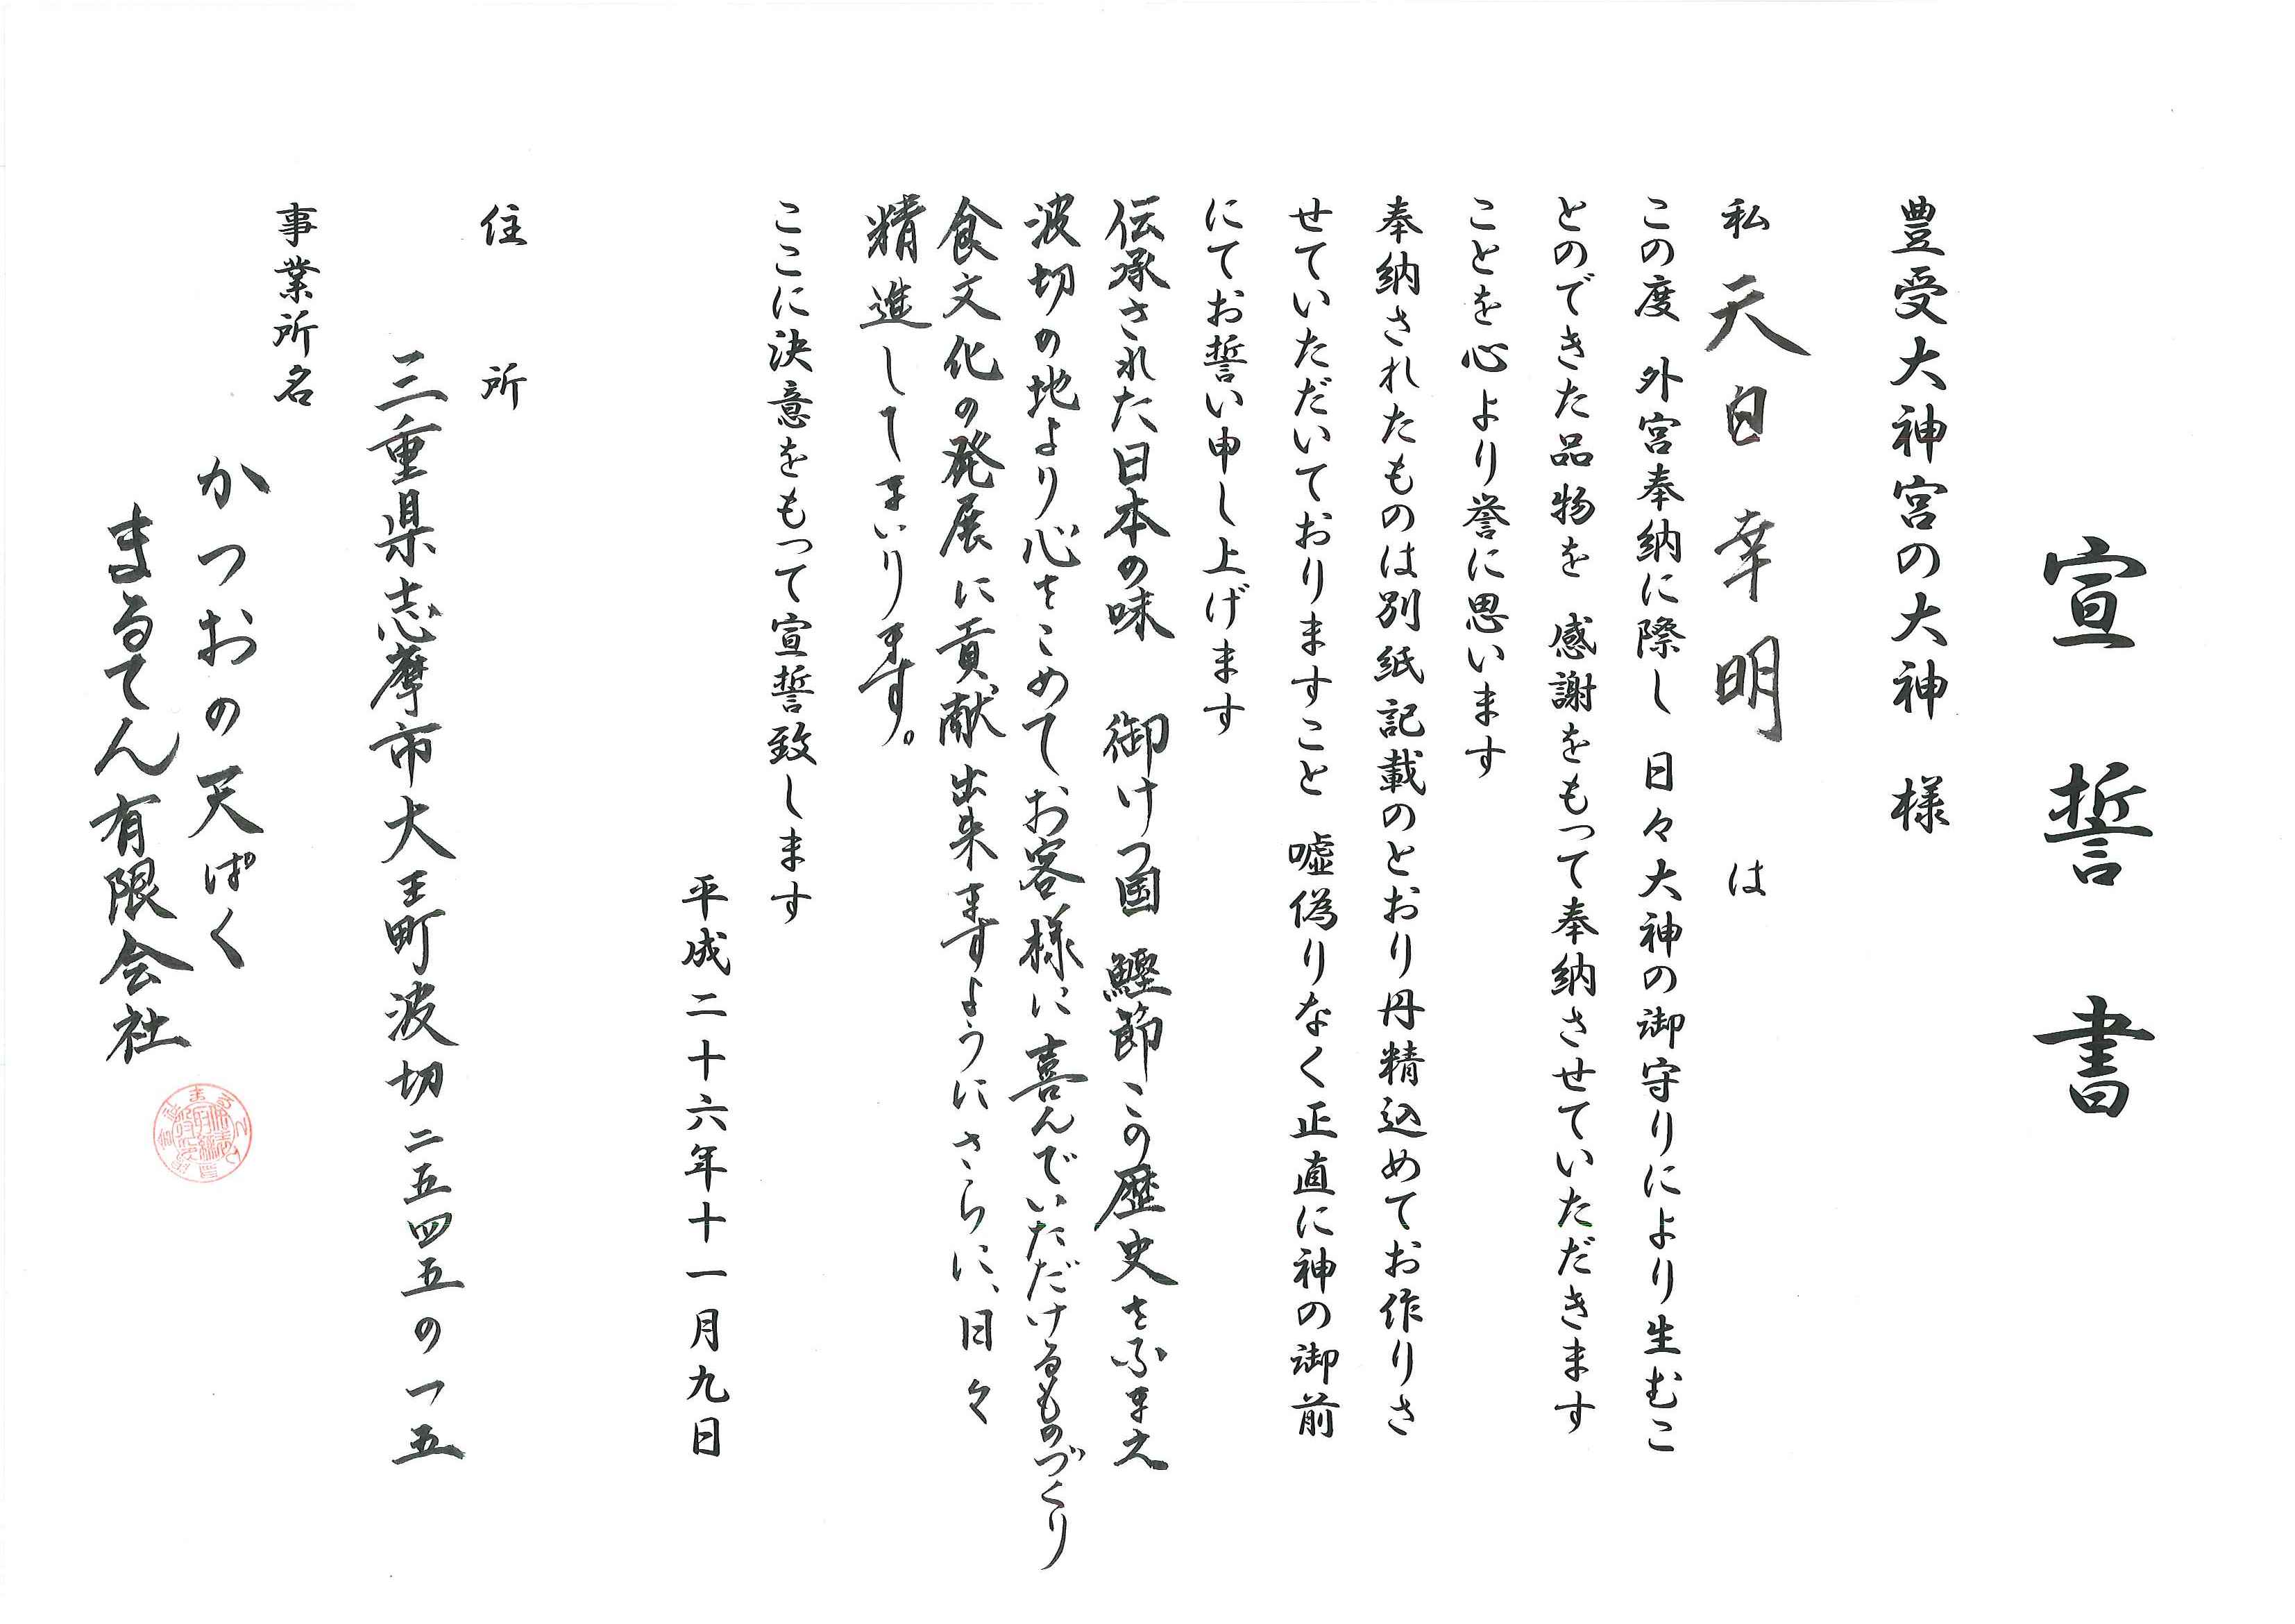 宣誓書
豊受大神宮の大神　様
私　天白　幸明　は
この度　外宮奉納に際し　日々大神の御守りにより生むこ
とのできた品物を　感謝をもって奉納させていただきます
ことを心より誉に思います
奉納されたものは別紙記載のとおり丹精込めてお作りさ
せていただいておりますこと　嘘偽りなく正直に神の御前
にてお誓い申し上げます
伝承された日本の味　御けつ国　鰹節この歴史をふまえ
波切の地より心をこめてお客様に喜んでいただけるものづくり
食文化の発展に貢献出来ますようにさらに、日々
精進してまいります。
ここに決意をもって宣誓致します
平成二十六年十一月九日
住所
三重県志摩市大王町波切二五四五の一五
事業所名
かつおの天ぱく
まるてん有限会社